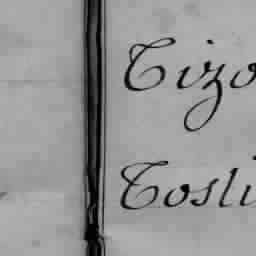 Tizo
Tosli